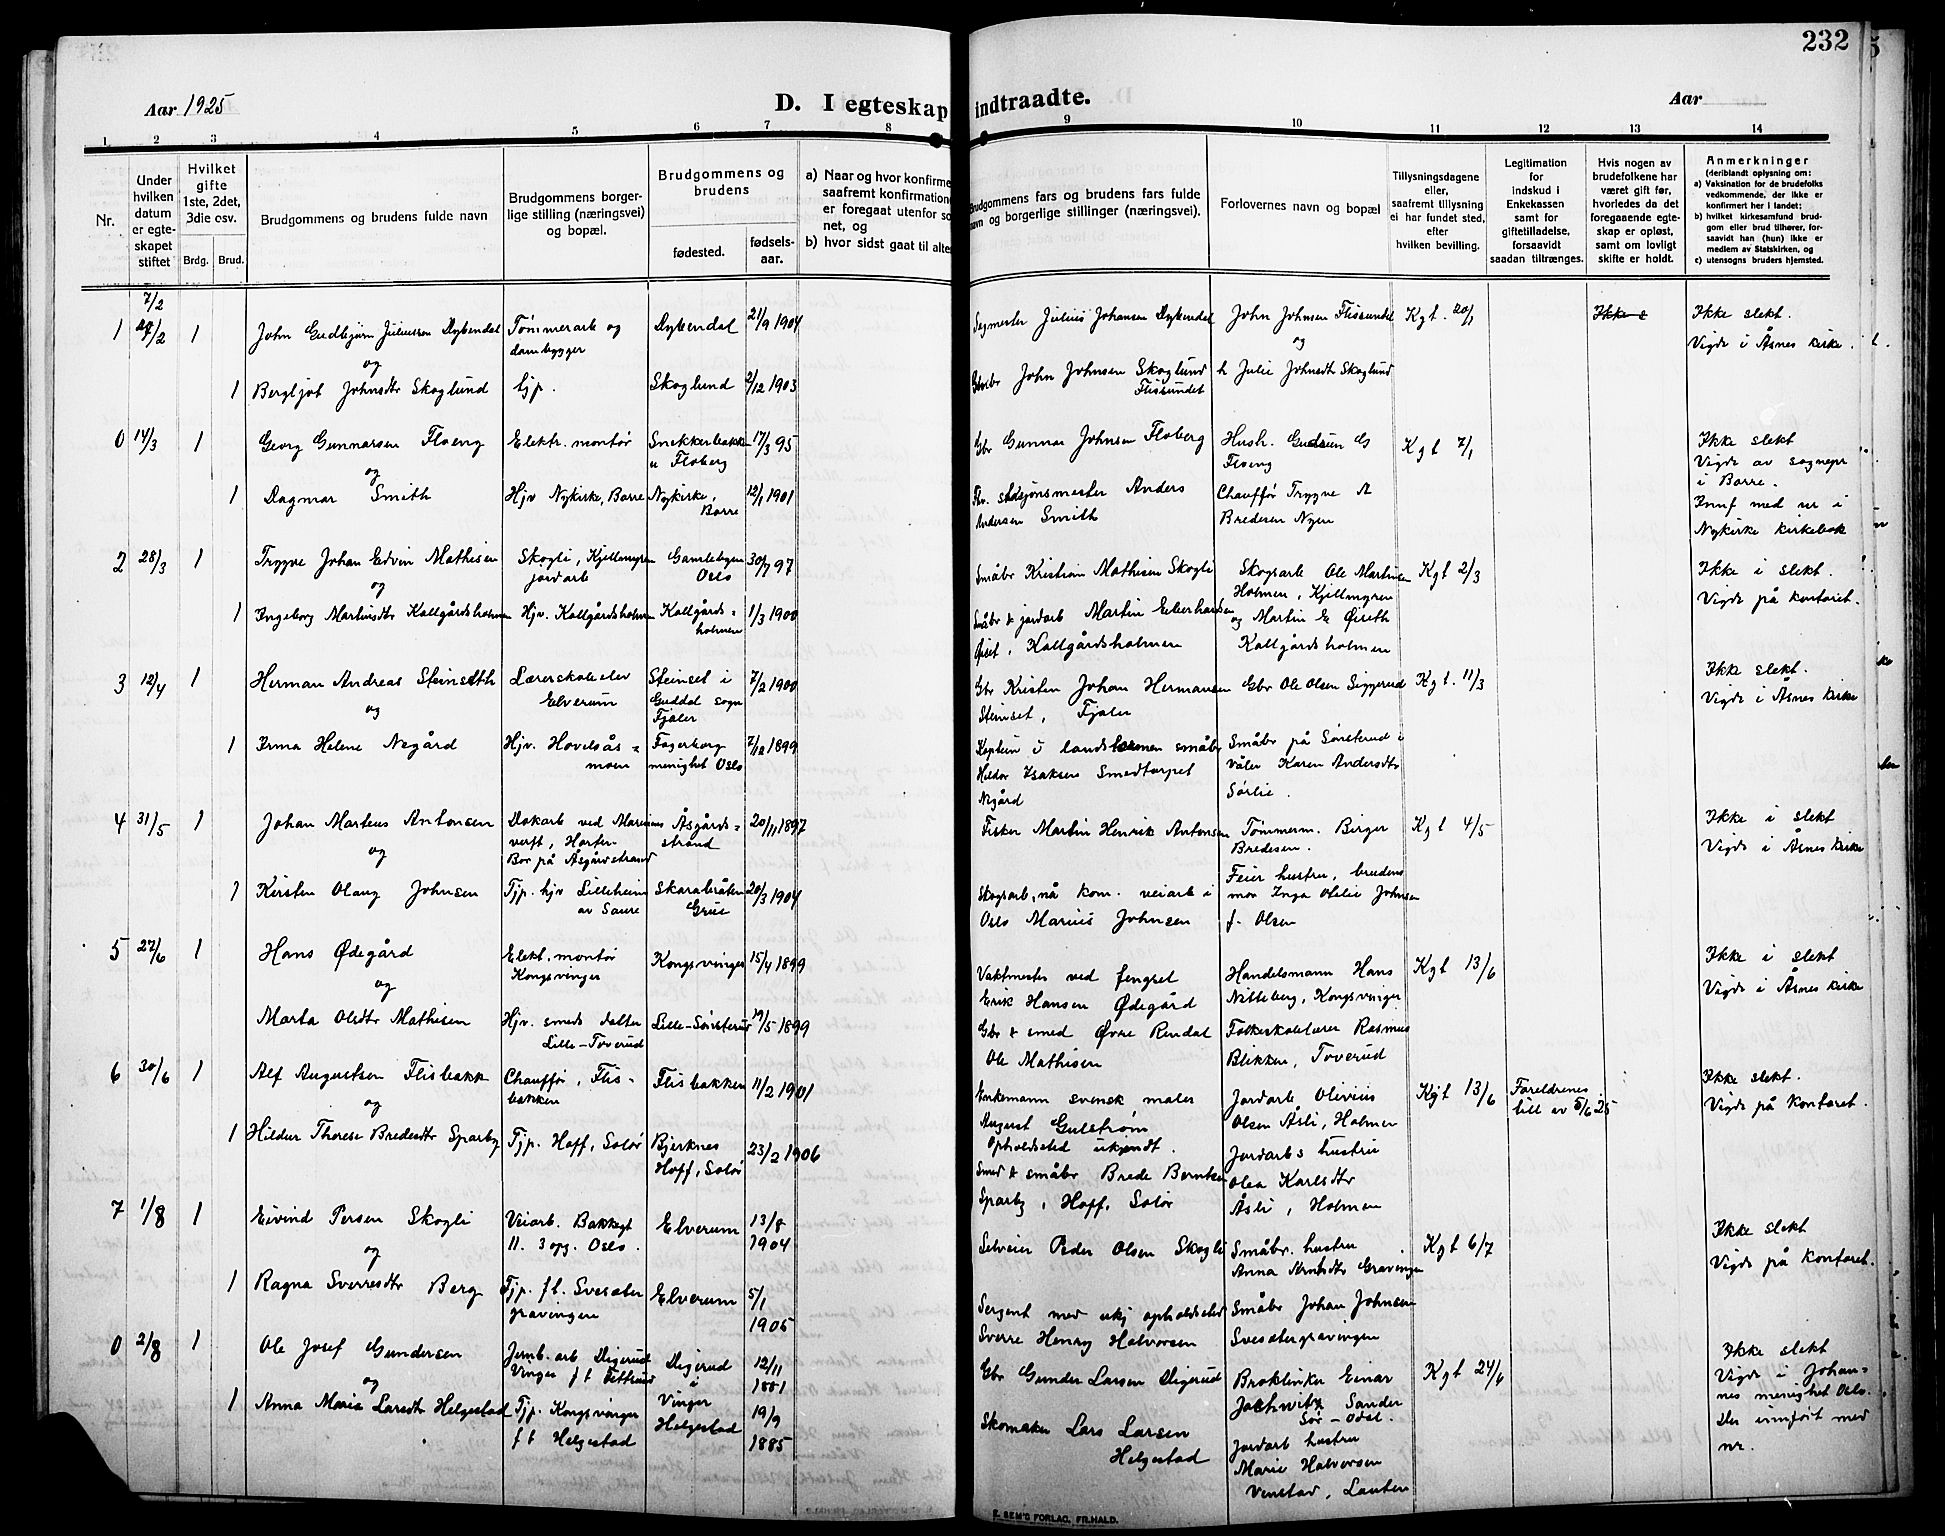 232
Aar 1925
D. I egteskap indtraadte.
Aar
1 2 3 4 5 6 7 8 9 10 11 12 13 14
Nr.
Under
hvilken
datum
er egte-
skapet
stiftet
Hvilket
gifte
1ste, 2det,
3die osv.
Brdg. Brud.
Brudgommens og brudens fulde navn
Brudgommens borger-
lige stilling (næringsvei)
og bopæl.
Brudgommens og
brudens
fødested.
fødsels-
aar.
a) Naar og hvor konfirme
saafremt konfirmatione
er foregaat utenfor so
net, og
b) hvor sidst gaat til alte
Brudgommens fars og brudens fars fulde
navn og borgerlige stillinger (næringsvei).
Forlovernes navn og bopæl
Tillysningsdagene
eller,
saafremt tillysning
ei har fundet sted,
efter
hvilken bevilling.
Legitimation
for
indskud i
Enkekassen
samt for
giftetilladelse,
forsaavidt
saadan tiltrænges.
Hvis nogen av
brudefolkene har
været gift før,
hvorledes da det
foregaaende egte-
skap er opløst,
samt om lovlig
skifte er holdt.
Anmerkninger
(deriblandt oplysning om:
a) Vaksination for de brudefolks
vedkommende, der ikke er
konfirmert her i landet;
b) hvilket kirkesamfund brud-
gom eller brud tilhører, for-
saavidt han (hun) ikke er
medlem av Statskirken, og
c) utensogns bruders hjemsted.
7/2
1 1 John Gudbjørn Juliussen Dybendal Tømmerarb og Dybendal 21/9 1904
dambygger
og
1 Bergljot Johnsdtr Skoglund hjp. Skoglund 2/12 1903
Sagmester Julius Johansen Dybendal John Johnsen Flissundet Kgt. 20/1 Ikke slekt.
og Vigde i Åsnes kirke.
John Johnsen Skoglund h Julie Johnsdtr Skoglund
Flissundet
0 14/3 1 Georg Gunnarsen Floeng Elektr. montør Snekkerbakk 17/3 95
og u Floberg
1 Dagmar Smith Hjv Nykirke, Borre Nykirke, 12/1 1901
Borre
Gbr Gunnar Johnsen Floberg Hush. Gudrun G Kgt 7/1 Ikke slekt
Floeng Vigde av sognepr
i Borre.
Fhv. stasjonsmester Anders Chauffør Trygve A Innf med nr i
Andersen Smith Bredesen Nyen Nykirke kirkebok
2 28/3 1 Trygve Johan Edvin Mathisen Skogli, Kjellmyren Gamlebyen 30/7 97
og jordarb Oslo
1 Ingeborg Martinsdtr Kallgårdsholmen Hjv. Kallgårdsholmen Kallgårds= 1/3 1900
holmen
Småbr Kristian Mathisen Skogli Skogsarb Ole Martinsen Kgt 2/3 Ikke i slekt.
Holmen, Kjellmyren Vigde på kontoret.
Småbr & jordarb Martin Eiberhardsen og Martin E Øiseth
Øiset, Kallgårdsholmen Kallgårdsholmen
3 12/4 1 Herman Andreas Steinseth Lærerskoleelev Steinset i 7/2 1900
og Elverum Guddal sogn
Fjaler
1 Irma Helene Negård Hjv. Hovelsås= Fagerborg 7/12 1899
moen menighet Oslo
Gbr Kristen Johan Hermansen Gbr Ole Olsen Siggerud Kgt. 11/3 Ikke slekt.
Steinset, Fjaler Vigde i Åsnes kirke
Kaptein i landstormen småbr Småbr på Sønsterud i
Hildor Isaksen Smedtorpet Våler Karen Andersdtr
Negård Sørlie.
4 31/5 1 Johan Martens Antonsen Dokarb ved Marinens Åsgårds= 20/11 1897
og verft, Horten strand
Bor på Åsgårdstrand
1 Kirsten Olaug Johnsen Tjp. hjv Lilleheim Skarabråten 20/3 1904
av Saure Grue
Fisker Martin Henrik Antonsen Tømmerm. Birger Kgt 4/5 Ikke i slekt
Bredesen. Vigde i Åsnes kirke
Feier hustru, brudens
Skogsarb, nå kom. veiarb i mor Inga Otelie Johnsen
Oslo Marius Johnsen f. Olsen
5 27/6 1 Hans Ødegård Elekt. montør Kongsvinger 15/4 1899
og Kongsvinger
Marta Olsdtr Mathisen Hjv. smeds datter Lille-Sønsterud 19/5 1899
Lille-Toverud
Vaktmester ved fengslet Handelsmann Hans Kgt 13/6 Ikke i slekt
Erik Hansen Ødegård Nitteberg, Kongsvinger Vigde i Åsnes kirke
Gbr & smed Øvre Rendal Folkeskolelærer Rasmus
Ole Mathisen Blikken, Toverud
6 30/6 1 Alf Augustsen Flisbakk Chauffør, Flis- Flisbakken 11/2 1901
og bakken
1 Hildur Therese Bredesdtr Sparby Tjp. Hoff, Solør Bjerknes 23/2 1906
Hoff, Solør
Enkemann svensk maler Jordarb Olivius Kgt 13/6 Foreldrenes Ikke slekt.
August Gulstrøm Olsen Åsli, Holmen till av 5/6 25 Vigde på kontoret.
Opholdsted ukjendt. Jordarbs hustru
Smed & småbr Brede Berntsen Olea Karlsdtr
Sparby, Hoff, Solør Åsli, Holmen
7 1/8 1 Eivind Persen Skogli Veiarb. Bakkegt Elverum 13/8
og 11. 3 opg. Oslo. 1904
1 Ragna Sverresdtr Berg Tjp. f.t. Svesæter Elverum 5/1
gravingen 1905
Selveier Peder Olsen Skogli Småbr. hustru Kgt 6/7 Ikke slekt
Anna Arntsdtr Gravingen Vigde på kontoret.
Sergent med ukj opholdsted Småbr Johan Johnsen
Sverre Henry Halvorsen Svesætergravingen
0 2/8 1 Ole Josef Gundersen Jernb. arb Digerud Digerud 12/11
og Vinger f t i 1881
1 Anna Maria Larsdtr Helgestad Tjp. Kongsvinger Vinger 19/9
f t Helgestad Helgestad 1885
Gbr Gunder Larsen Digerud Einar Kgt 24/6 Ikke slekt
Sander Vigde i Johan-
Sør-Odal. nes menighet Oslo.
Skomaker Lars Larsen Jordarb hustru Der innført med
Helgestad Marie Halvorsen nr.
E. SEM'S FORLAG, FR.HALD.